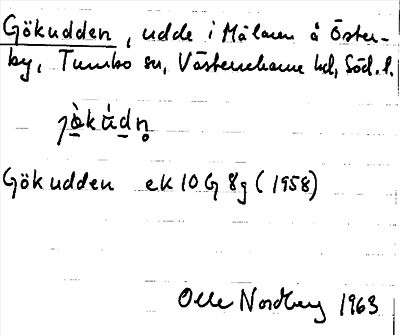 Gökudden, udde i Mälaren å Öster-
by, Tumbo sn, Västerrekarne hd, Söd. l.
jö̀kùdn̥
Gökudden ek 10G 8g (1958)
Olle Nordberg 1963